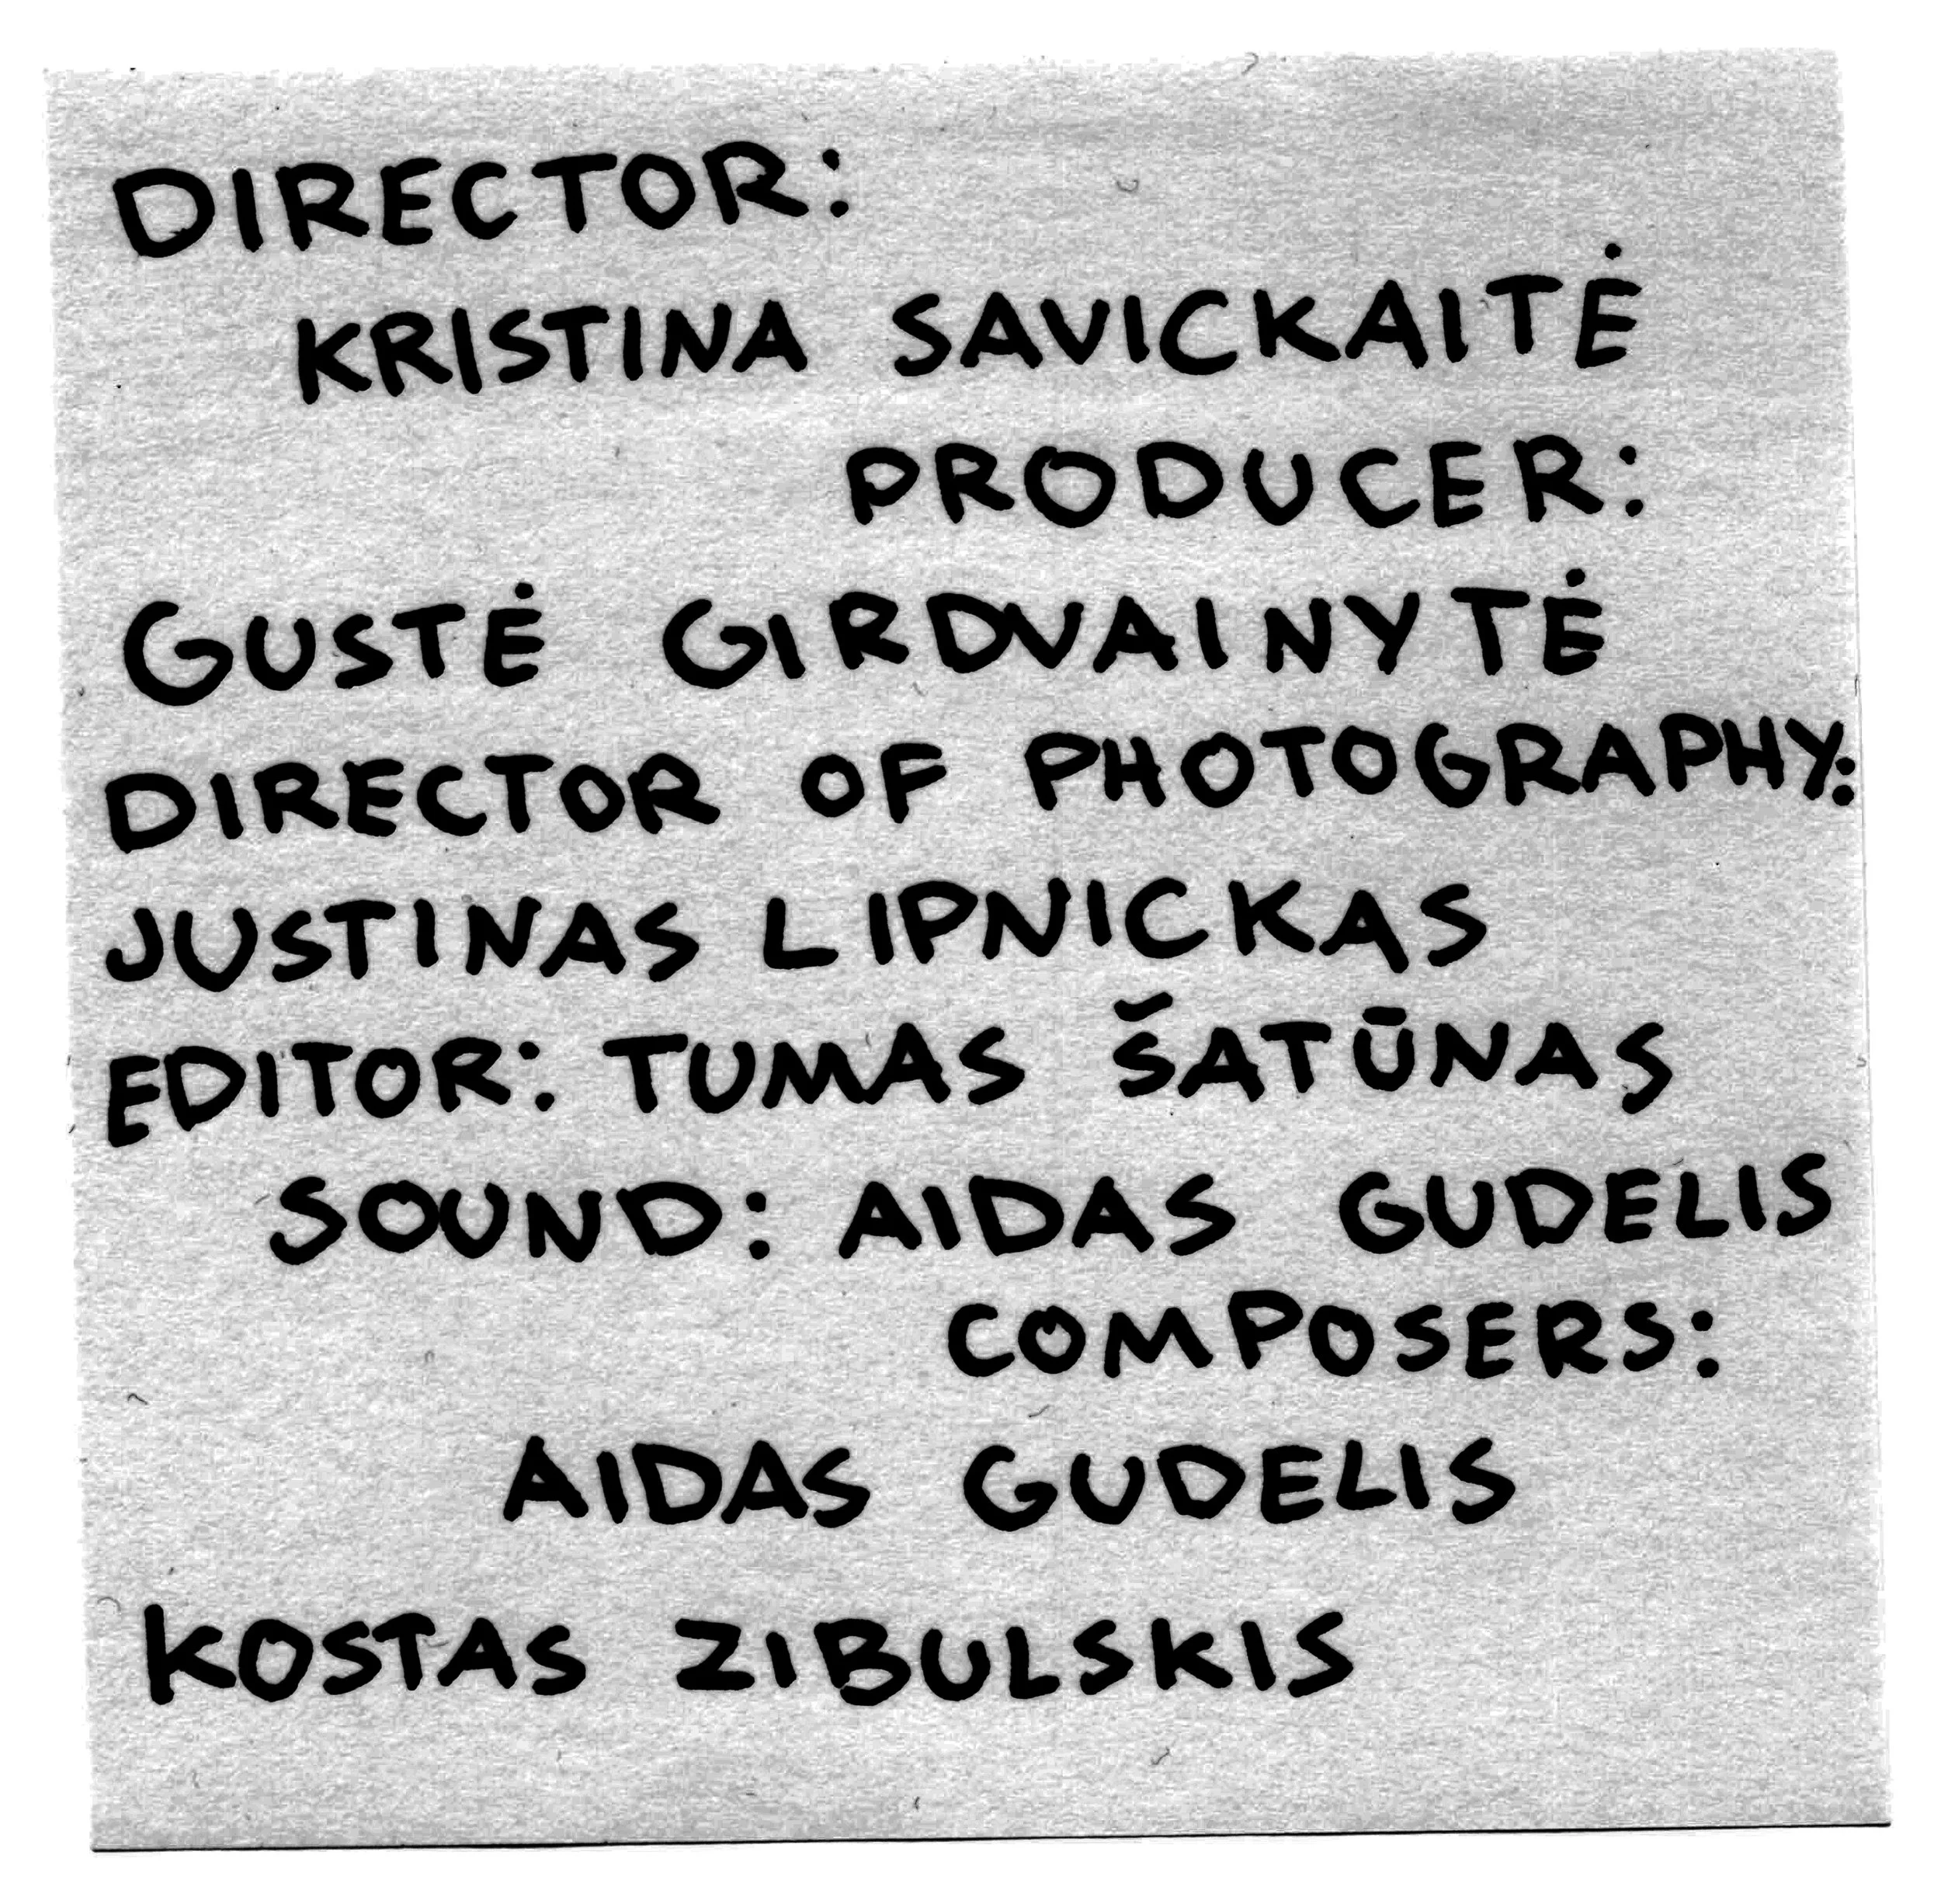 DIRECTOR:
KRISTINA SAVICKAITĖ
PRODUCER:
GUSTĖ GIRDVAINYTĖ
DIRECTOR OF PHOTOGRAPHY:
JUSTINAS LIPNICKAS
EDITOR: TUMAS ŠATŪNAS
SOUND: AIDAS GUDELIS
COMPOSERS:
AIDAS GUDELIS
KOSTAS ZIBULSKIS